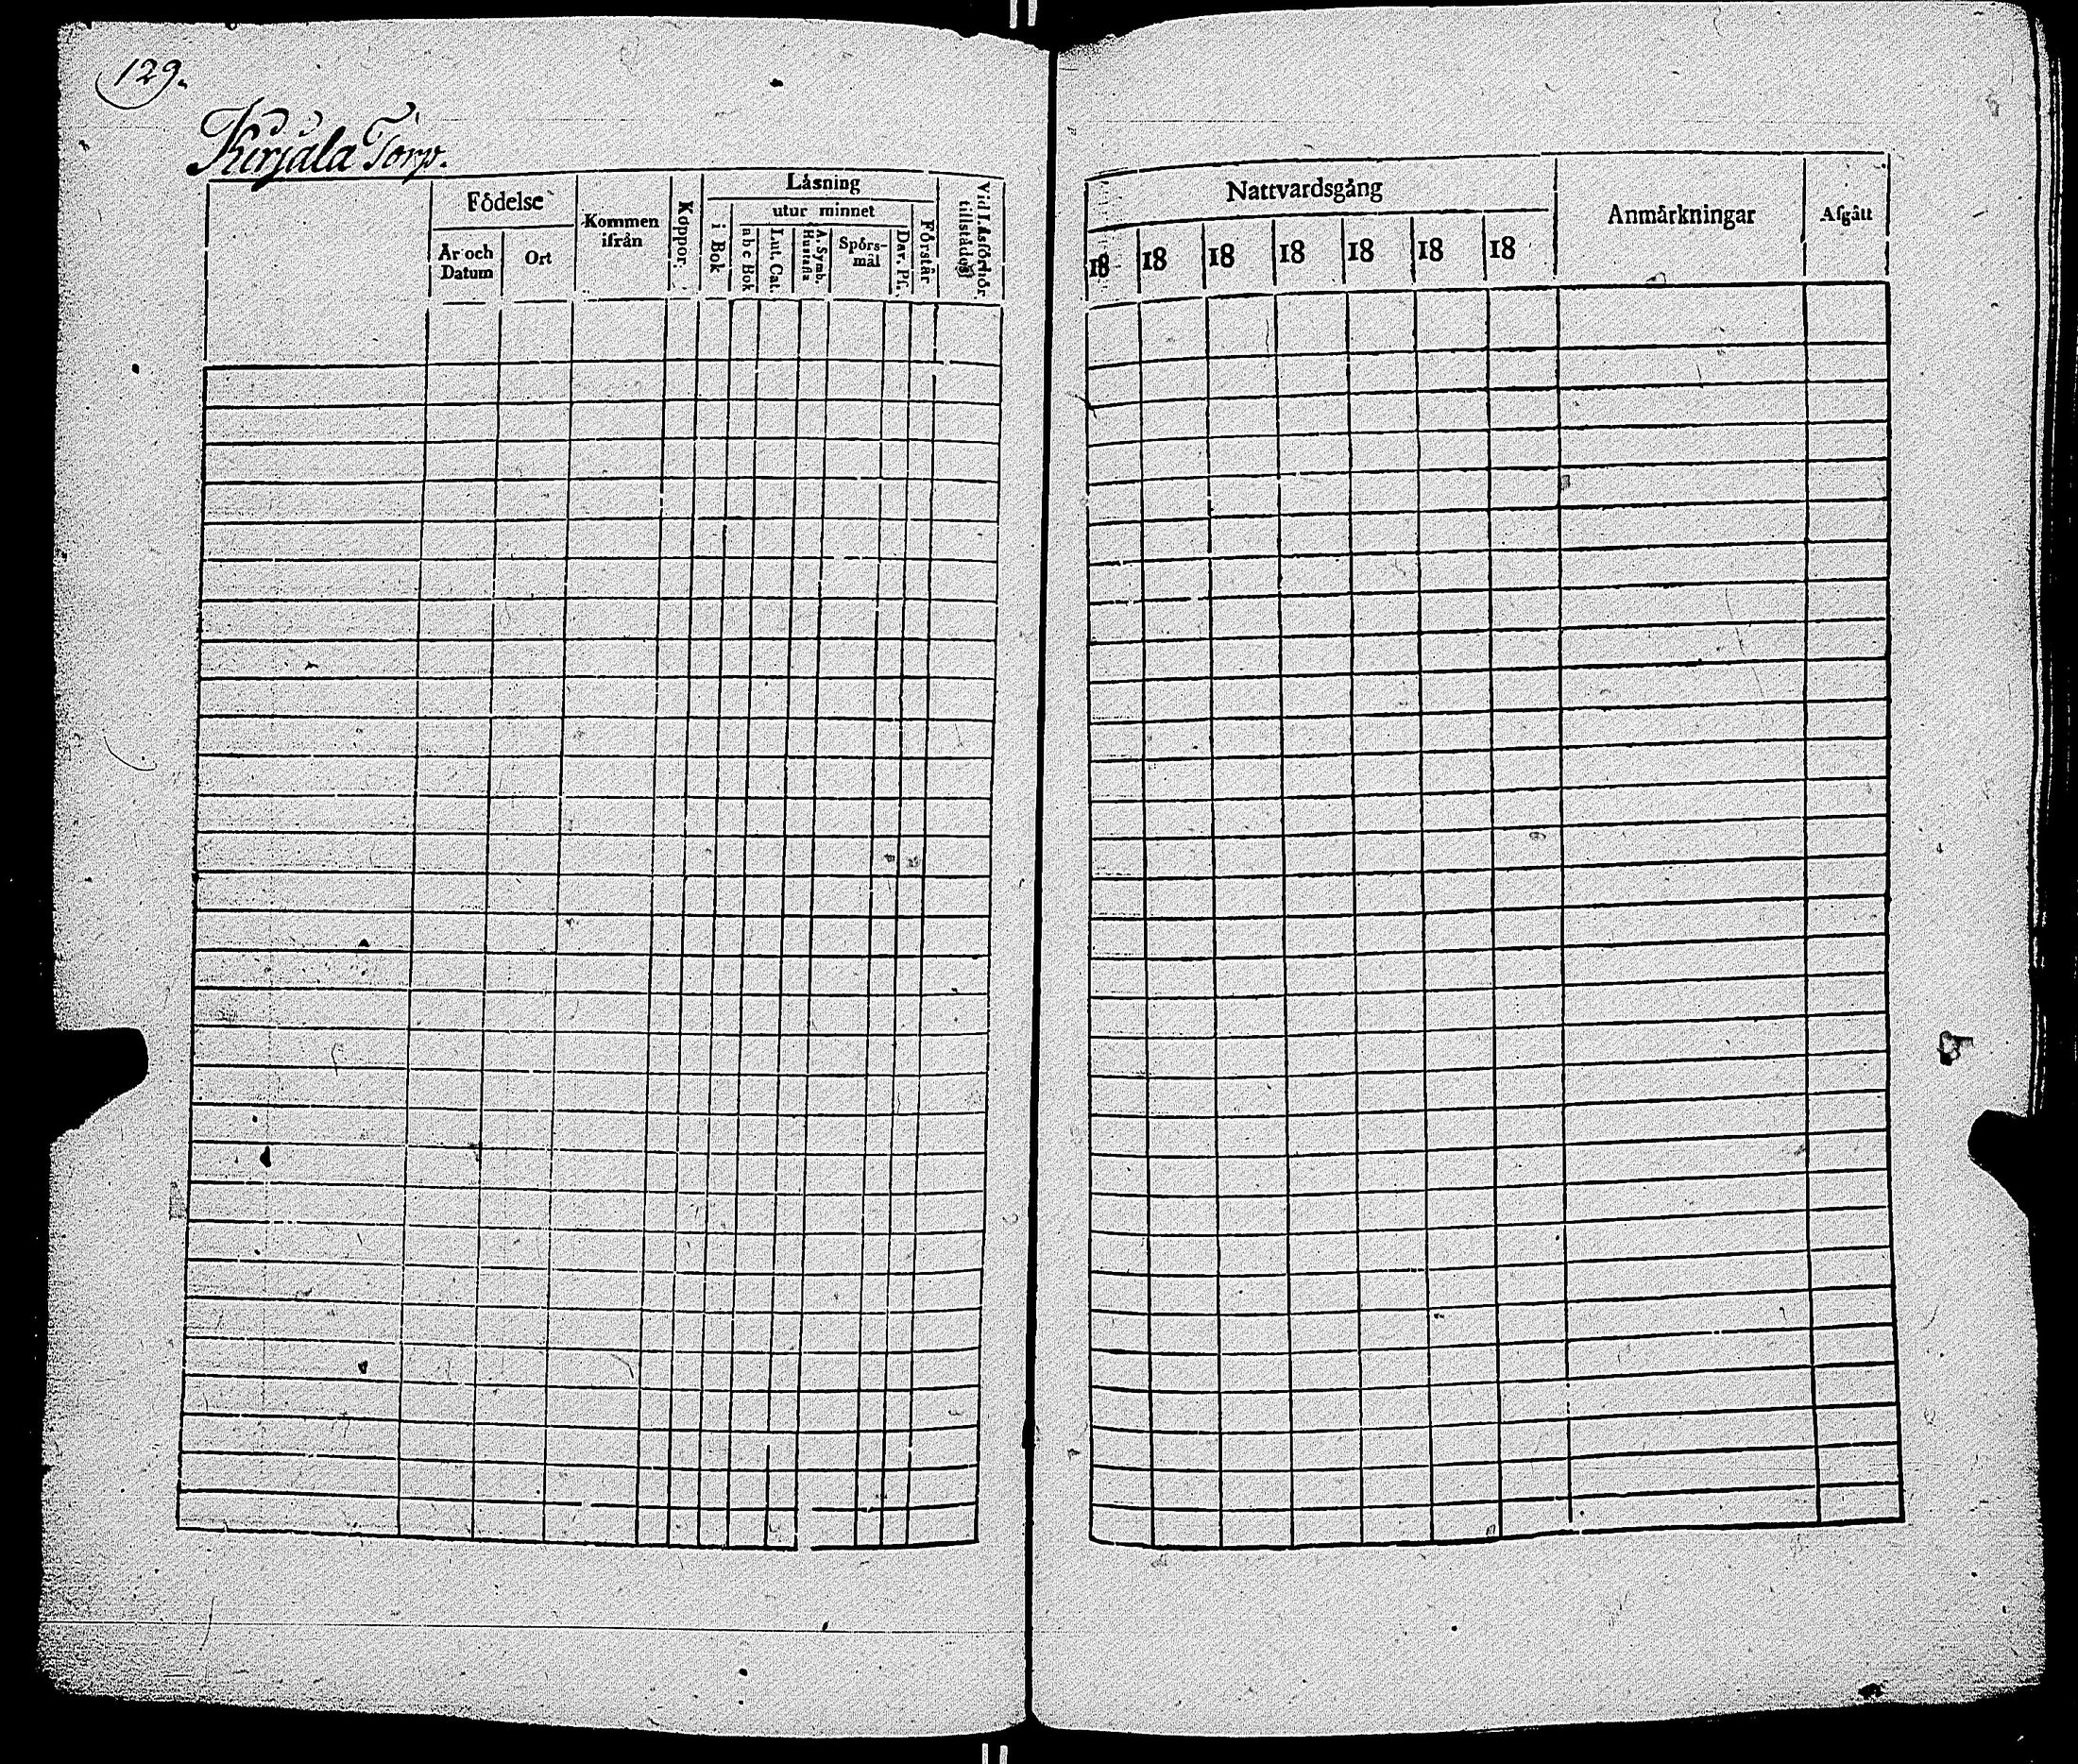 129.
Kirjala Torp.
Födelse
År och Datum
Ort
Kommen ifrån
Koppor.
Läsning
i Bok
utur minnet
a b c Bok
Lut. Cat.
A. Symb. Hustafla
Spörs-
mål
Dav. Ps.
Förstår
Vid Läsförhör. tillstädes
Nattvardsgång
18 18 18 18 18 18 18
Anmärkningar
Afgått